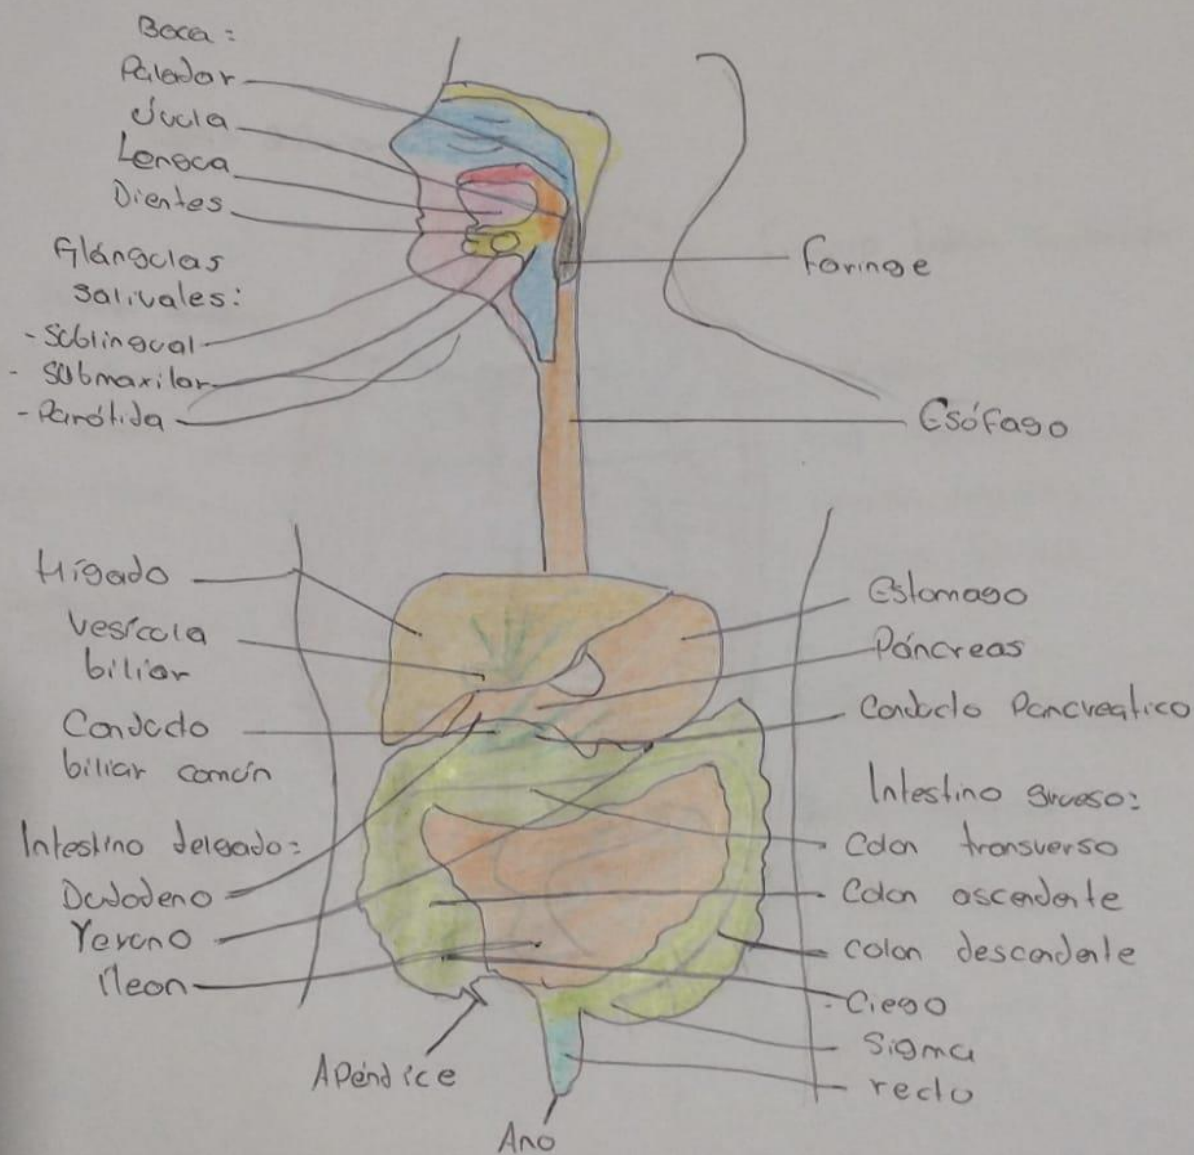 Boca:
Paladar
Úvula
Lengua
Dientes
Glángulas
salivales:
- Sublingual
- Submaxilar
- Parótida
Faringe
Esófago
Hígado
Vesícula
biliar
Conducto
biliar común
Intestino delgado:
Duodeno
Yeyuno
Íleon
Apéndice
Ano
Estomago
Páncreas
Conducto Pancreatico
Intestino grueso:
Colon transverso
Colon ascendente
Colon descendente
Ciego
Sigma
recto